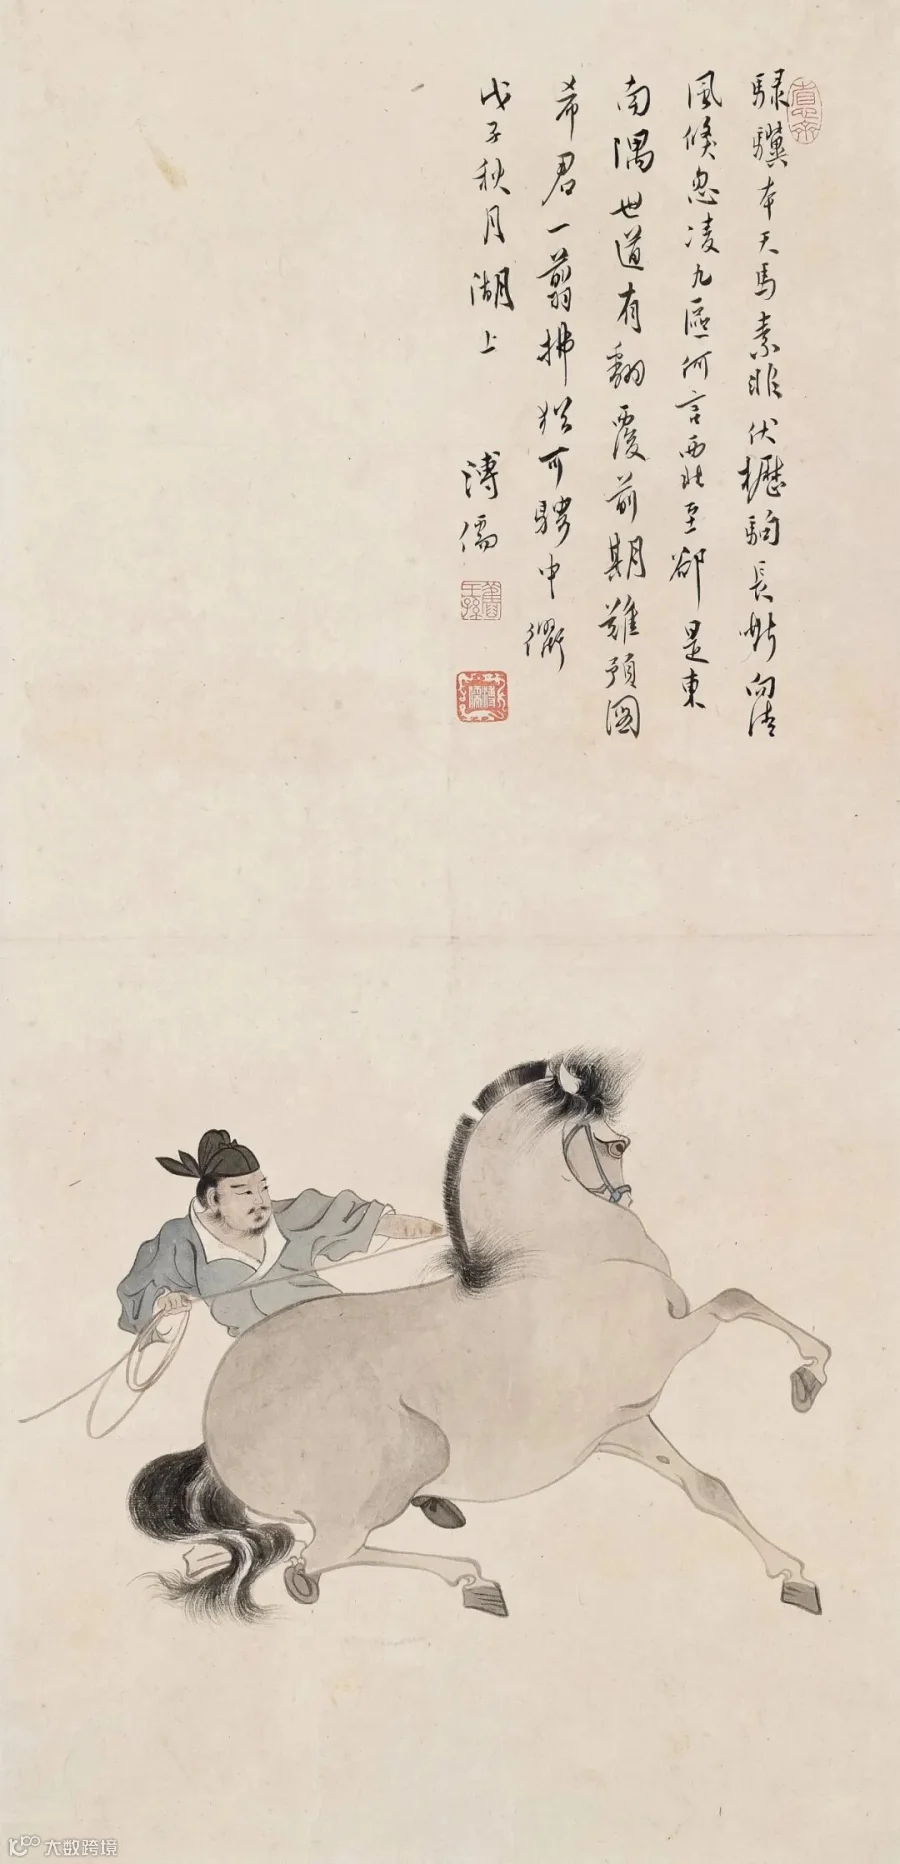 騄驥本天馬素非伏櫪駒長嘶向清
風倏忽凌九區何言西北至卻是東
南隅世道有翻覆前期難預圖
希君一翦拂猶可騁中衢
戊子秋月湖上
溥儒
舊王孫
溥儒
大数跨境